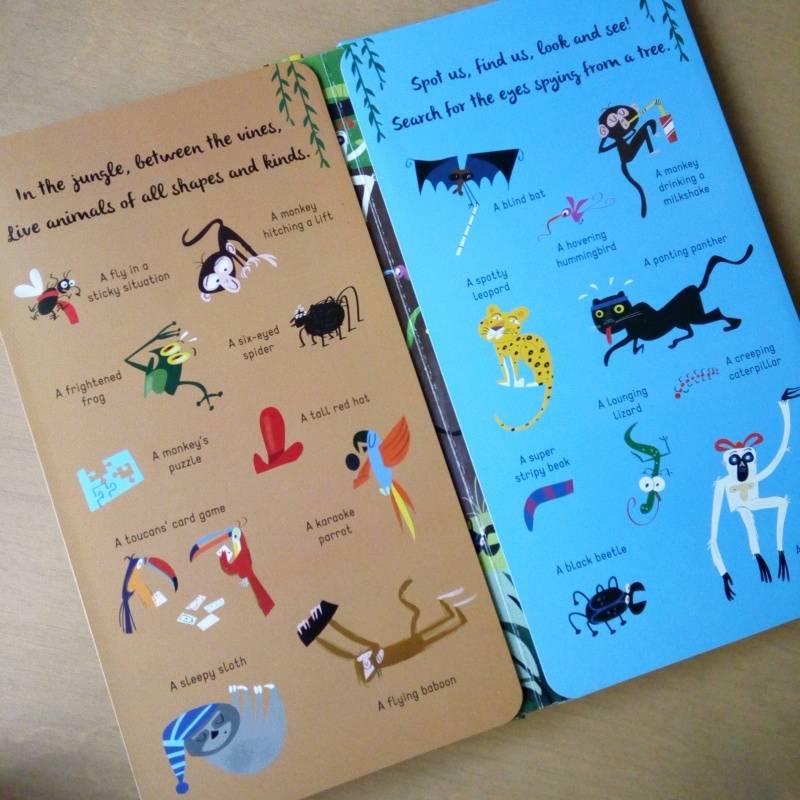 In the jungle, between the vines,
Live animals of all shapes and kinds.
A monkey
hitching a lift
A fly in a
sticky situation
A six-eyed
spider
A frightened
frog
A tall red hat
A monkey's
puzzle
A karaoke
parrot
A toucans' card game
A sleepy sloth
A flying baboon
Spot us, find us, look and see!
Search for the eyes spying from a tree.
A blind bat
A monkey
drinking a
milkshake
A hovering
hummingbird
A spotty
leopard
A panting panther
A creeping
caterpillar
A lounging
lizard
A super
stripy beak
A black beetle